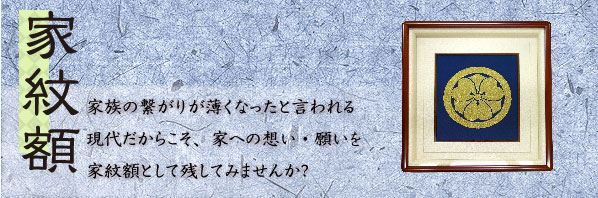 家紋額
家族の繋がりが薄くなったと言われる
現代だからこそ、家への想い・願いを
家紋額として残してみませんか?